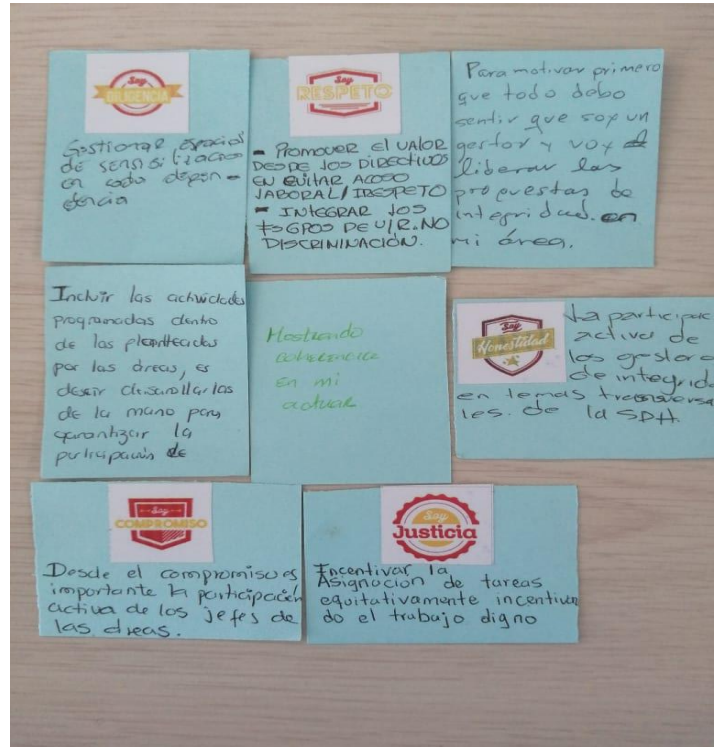 Soy
DILIGENCIA
Gestionar espacios
de sensibilización
en cada depen-
dencia
Soy
RESPETO
- PROMOVER El VALOR
DESDE lOS DIRECTIVOS
EN EVITAR ACOSO
lABORAL/IRESPETO
- INTEGRAR lOS
DE V/R. NO
DISCRIMINACIÓN.
Para motivar primero
que todo debo
sentir que soy un
gestor y voy a
liberar las
propuestas de
integridad en
mi área.
Incluir las actividades
programadas dentro
de las planteadas
por las áreas, es
desir desarrollarlas
de la mano para
garantizar la
participación de
Mostrando
coherencia
en mi
actuar
Soy
Honestidad
La participac
activa de
los gestore
de integrid
en temas transversa
les. de la SDH.
Soy
COMPROMISO
Desde el compromiso es
importante la participación
activa de los jefes de
las áreas.
Soy
Justicia
Incentivar la
Asignación de tareas
equitativamente incentivan
do el trabajo digno